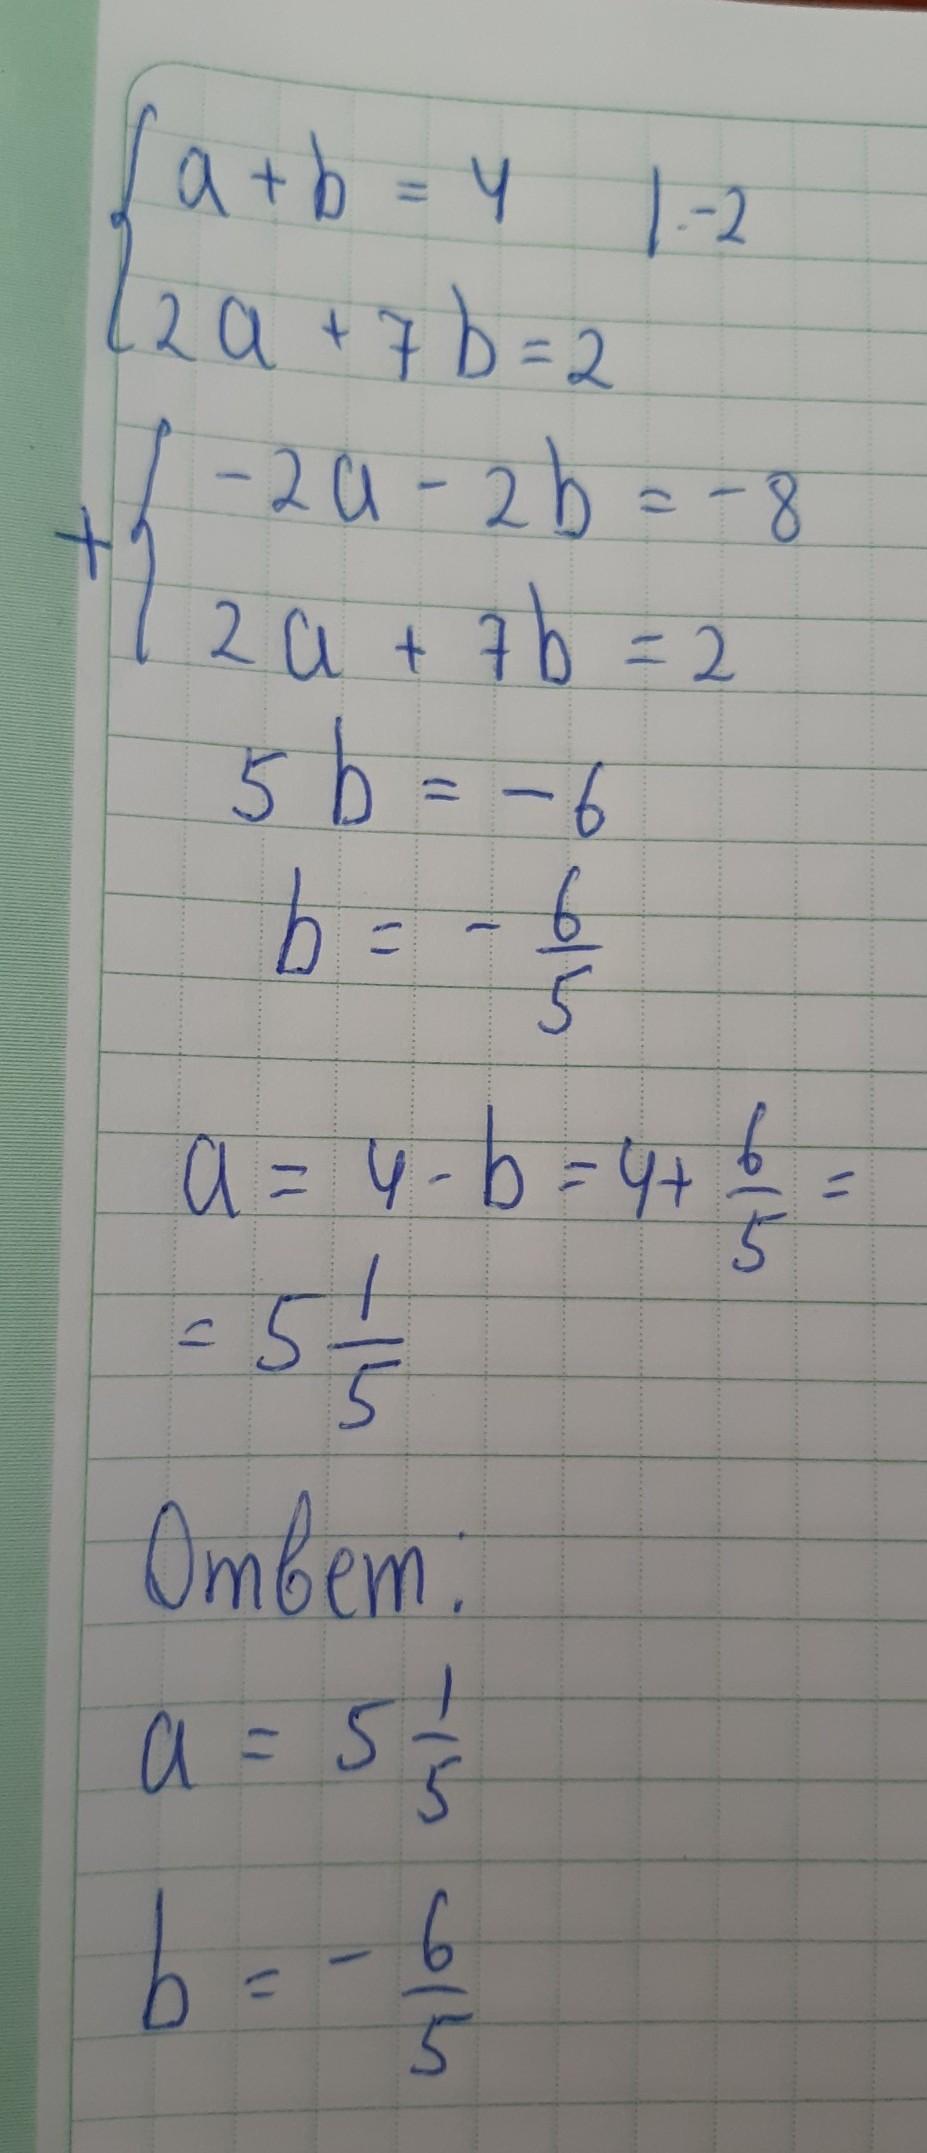 a + b = 4 |·-2
2a + 7b = 2
+ -2a - 2b = -8
2a + 7b = 2
5b = -6
b = - 6/5
a = 4 - b = 4 + 6/5 =
= 5 1/5
Ответ:
a = 5 1/5
b = - 6/5